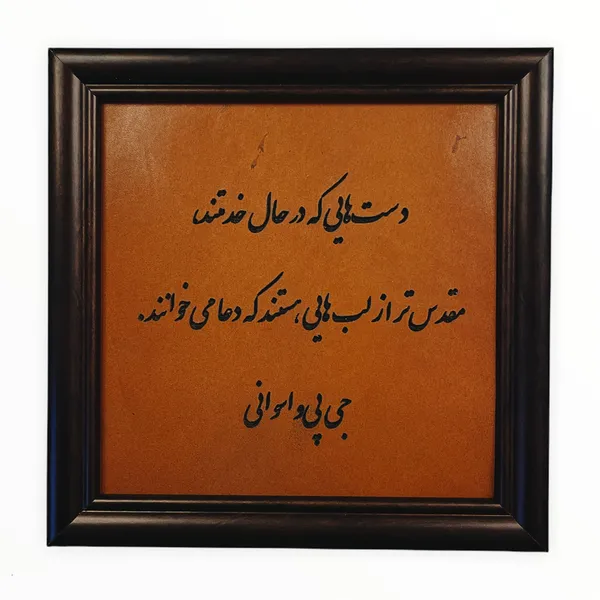 دست‌هایی که در حال خدمتند،
مقدس تر از لب هایی هستند که دعا می خوانند.
جی پی واسوانی